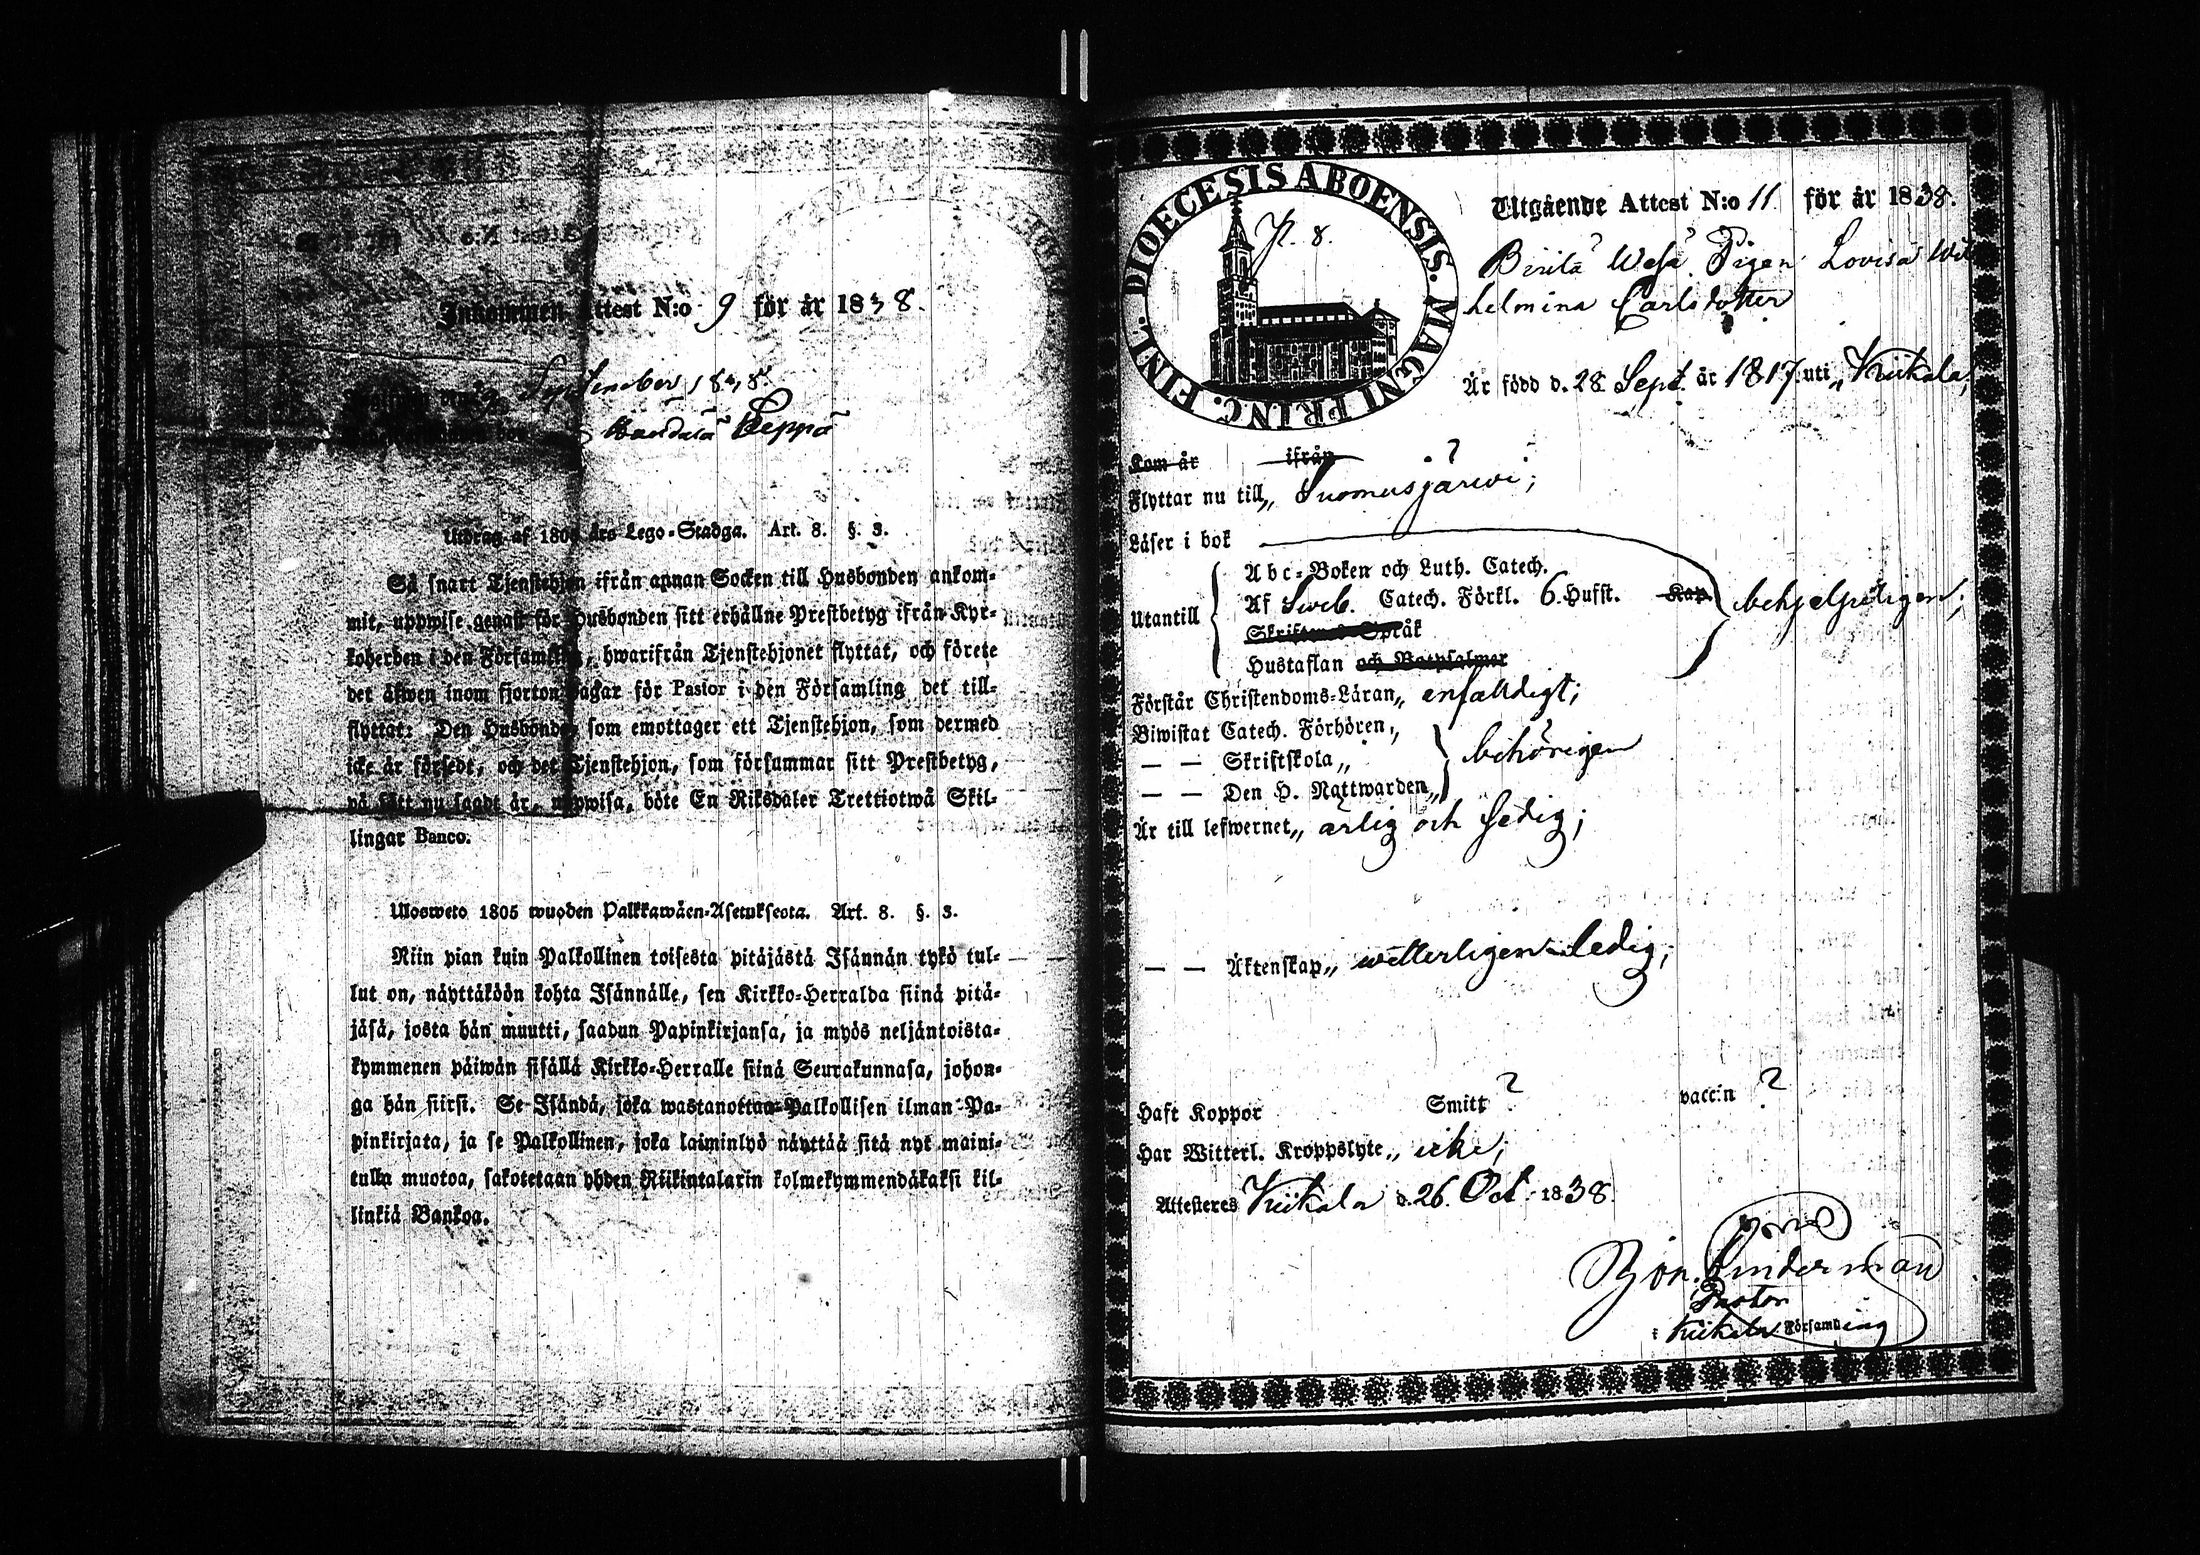 Inkommen Attest N:o 9 för år 1838.
September 1838.
Leppä
Utdrag af 1805 års Lego-Stadga. Art. 8. §. 3.
Så snart Tjenstehjon ifrån annan Socken till Husbonden ankom-
mit, uppwise genast för Husbonden sitt erhållne Prestbetyg ifrån Kyr-
koherden i den Församling, hwarifrån Tjenstehjonet flyttat, och förete
det äfwen inom fjorton dagar för Pastor i den Församling det till-
flyttat: Den Husbonde, som emottager ett Tjenstehjon, som dermed
icke är försedt, och det Tjenstehjon, som försummar sitt Prestbetyg,
på sätt nu sagdt är, uppwisa, böte En Riksdaler Trettiotwå Skil-
lingar Banco.
Ulosweto 1805 wuoden Palkkawäen-Asetuksesta. Art. 8. §. 3.
Niin pian kuin Palkollinen toisesta pitäjästä Isännän tykö tul-
lut on, näyttäköön kohta Isännälle, sen Kirkko-Herralda siinä pitä-
jäsä, josta hän muutti, saadun Papinkirjansa, ja myös neljäntoista-
kymmenen päiwän sisällä Kirkko-Herralle siinä Seurakunnasa, johon-
ga hän siirsi. Se Isändä, joka wastanottaa Palkollisen ilman Pa-
pinkirjata, ja se Palkollinen, joka laiminlyö näyttää sitä nyt maini-
tulla muotoa, sakotetaan yhden Riikintalarin kolmekymmendäkaksi kil-
linkiä Bankoa.
DIOECESIS ABOENSIS. MAGNI PRINC. FINL.
N. 8.
Utgående Attest N:o 11 för år 1838.
Pigan Lovisa Wil
helmina Carlsdotter
Är född d. 28 Sept. år 1817. uti „ Kiikala,
Kom år ifrån
Flyttar nu till „ Suomusjärwi;
Läser i bok
Utantill
Abc-Boken och Luth. Catech.
Af Sweb. Catech. Förkl. 6. Hufst. Kap
Skriftenes Språk
Hustaflan och Botpsalmer
behjelpeligen;
Förstår Christendoms-Läran „ enfalldigt;
Biwistat Catech. Förhören „
— — Skriftskola „
— — Den H. Nattwarden „
behörigen
Är till lefwernet „ ärlig och sedig;
— — Äktenskap „ witterligen ledig;
Haft Koppor Smitt ? vaccin ?
Har Witterl. Kroppslyte „ icke;
Attesteres Kiikala d. 26. Oct. 1838.
Björn. Linderman
Pastor
i Kiikala Församling